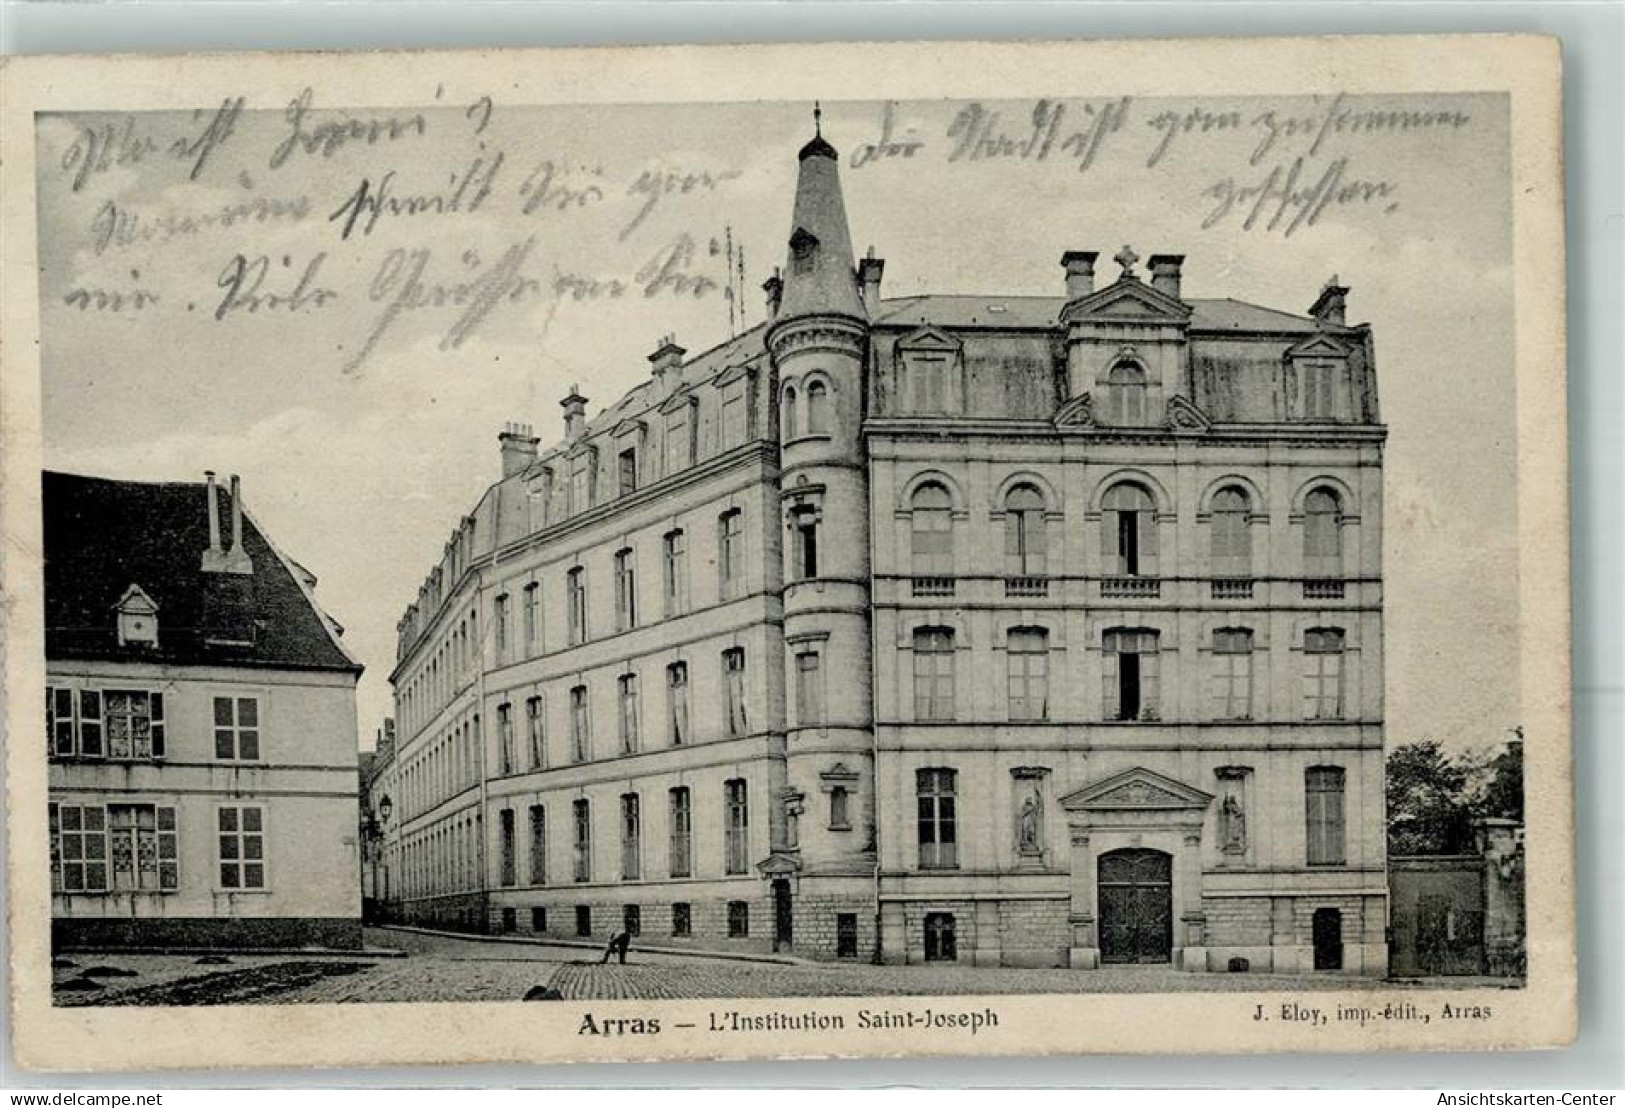 Wo ist Hanni?
schreibt Sie gar
nie. Viele Grüße an Sie.
Die Stadt ist ganz zusammen
geschossen.
Arras — L'Institution Saint-Joseph
J. Eloy, imp.-édit., Arras
oldthing.de
Ansichtskarten-Center